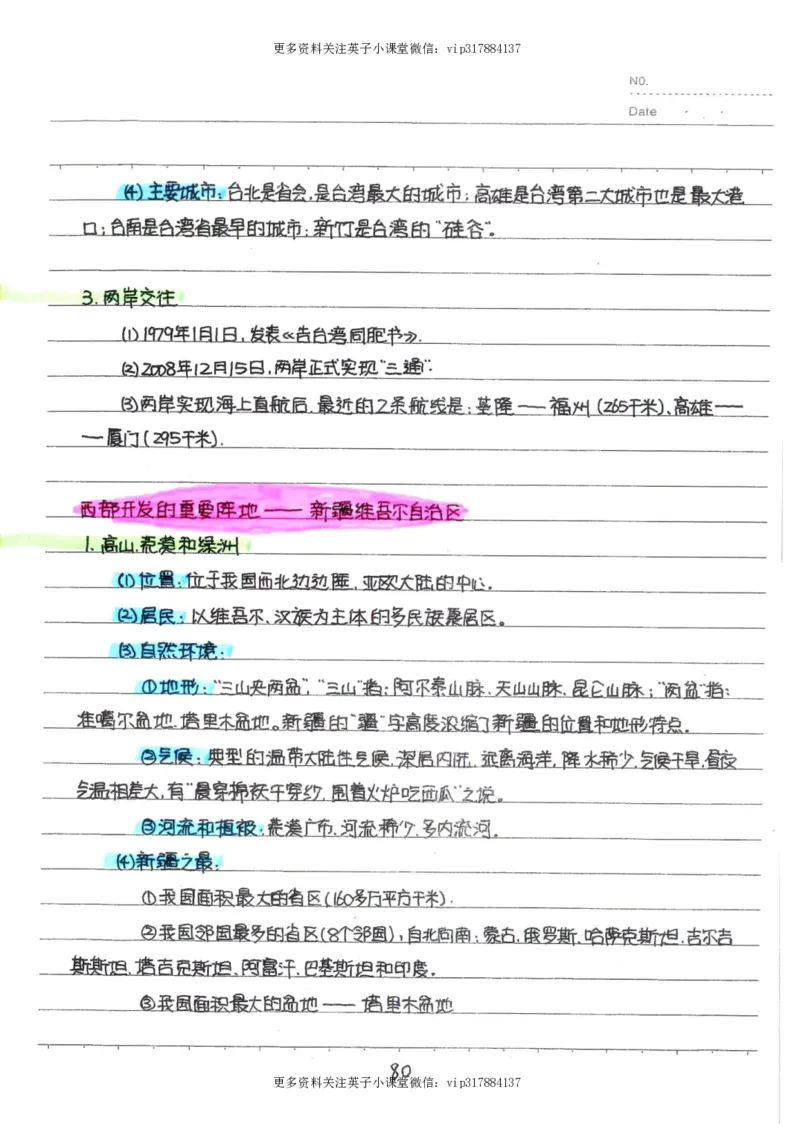 更多资料关注英子小课堂微信：vip317884137
NO.
Date
(4)主要城市：台北是省会，是台湾最大的城市；高雄是台湾第二大城市也是最大港
口；台南是台湾省最早的城市；新竹是台湾的“硅谷”。
3.两岸交往
(1)1979年1月1日，发表《告台湾同胞书》.
(2)2008年12月15日，两岸正式实现“三通”.
(3)两岸实现海上直航后，最近的2条航线是：基隆——福州(265千米)、高雄——
—厦门(295千米).
西部开发的重要阵地——新疆维吾尔自治区
1.高山.荒漠和绿洲
(1)位置：位于我国西北边边陲，亚欧大陆的中心.
(2)居民：以维吾尔、汉族为主体的多民族聚居区。
(3)自然环境：
①地形：“三山夹两盆”，“三山”指：阿尔泰山脉.天山山脉.昆仑山脉；“两盆”指：
准噶尔盆地.塔里木盆地。新疆的“疆”字高度浓缩了新疆的位置和地形特点.
②气候：典型的温带大陆性气候，深居内陆，远离海洋，降水稀少，气候干旱，昼夜
气温相差大，有“晨穿棉袄午穿纱，围着火炉吃西瓜”之说。
③河流和植被：荒漠广布，河流稀少，多内流河.
(4)新疆之最：
①我国面积最大的省区(160多万平方千米).
②我国邻国最多的省区(8个邻国)，自北向南：蒙古.俄罗斯.哈萨克斯坦.吉尔吉
斯斯坦.塔吉克斯坦、阿富汗.巴基斯坦和印度。
③我国面积最大的盆地——塔里木盆地
80
更多资料关注英子小课堂微信：vip317884137